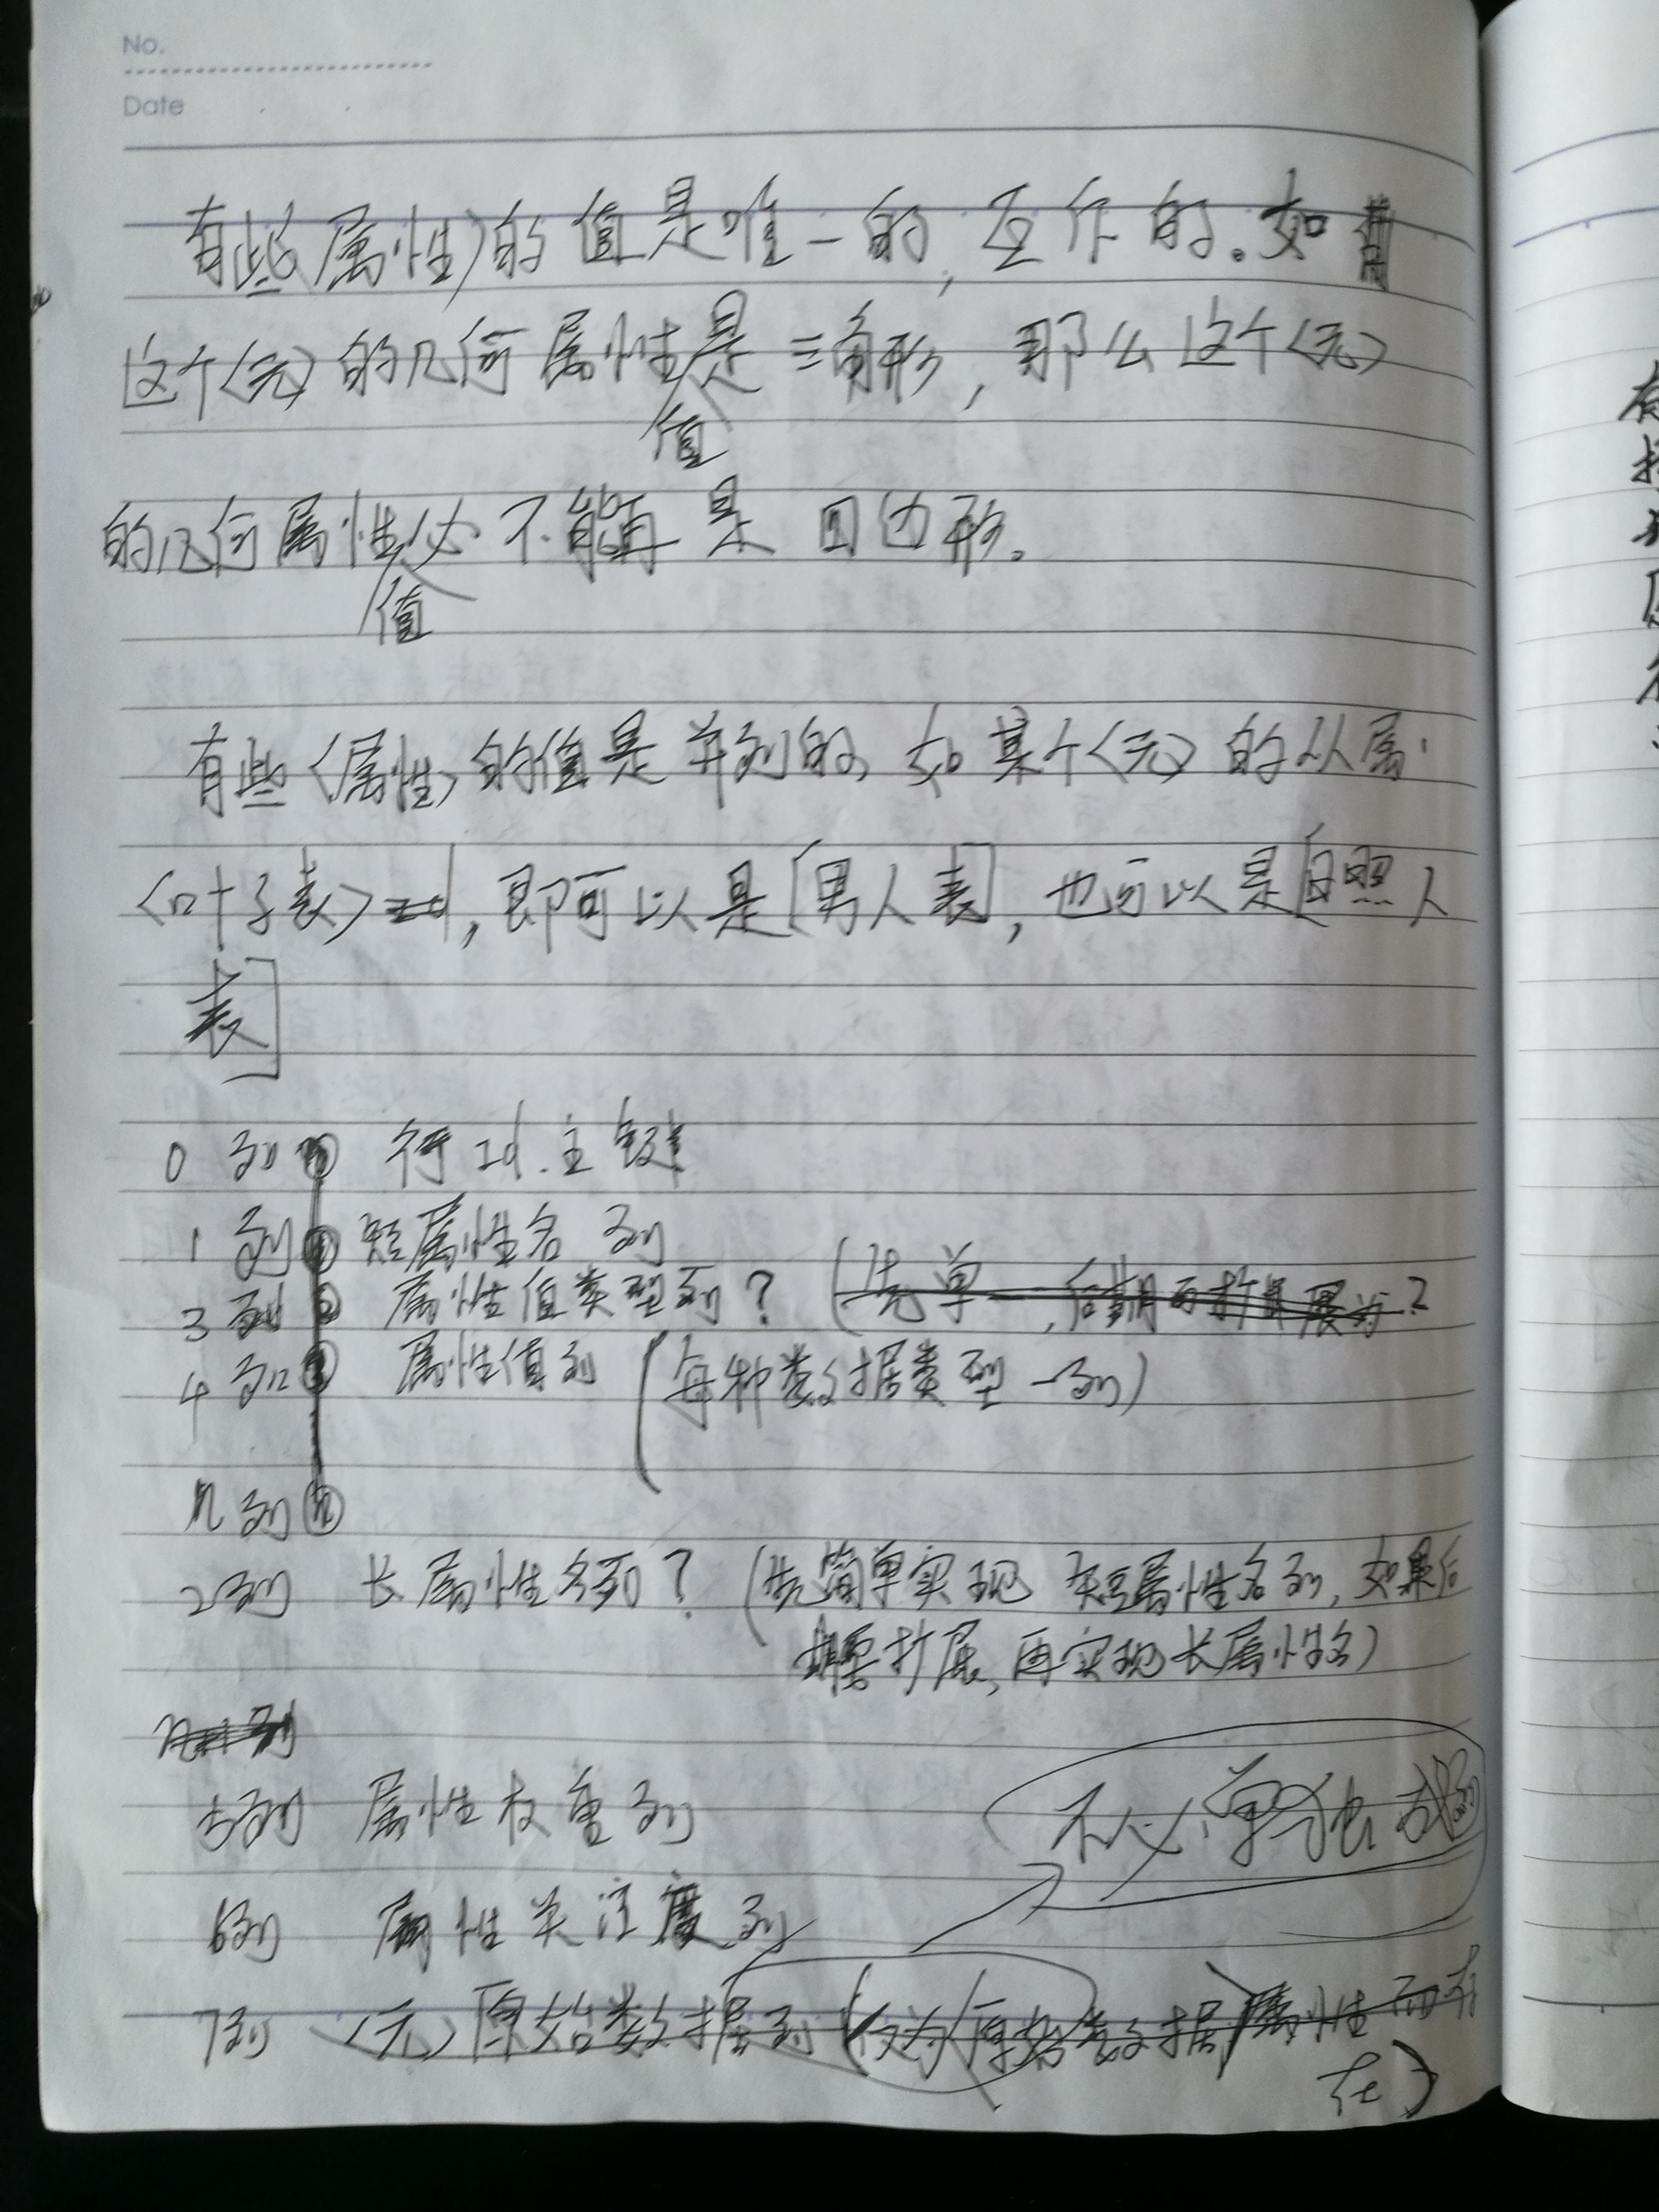 No.
Date
有些属性)的值是唯一的,互斥的。如
这个<元>的几何属性值是三角形,那么这个<元>
的几何属性值必不能再是四边形。
有些<属性>的值是并列的,如某个<元>的从属
<叶子表>Id,即可以是[男人表],也可以是[日照人
表]
0列 行Id.主键
1列 短属性名列
3列 属性值类型列?(先单一,后期再扩展为?
4列 属性值列(每种数据类型一列)
n列 n
2列 长属性名列?(先简单实现短属性名列,如果后
期要扩展,再实现长属性名)
n+1列
5列 属性权重列
不必单独成列
6列 属性关注度列
7列 <元>原始数据列(仅为原始数据属性而存
在)